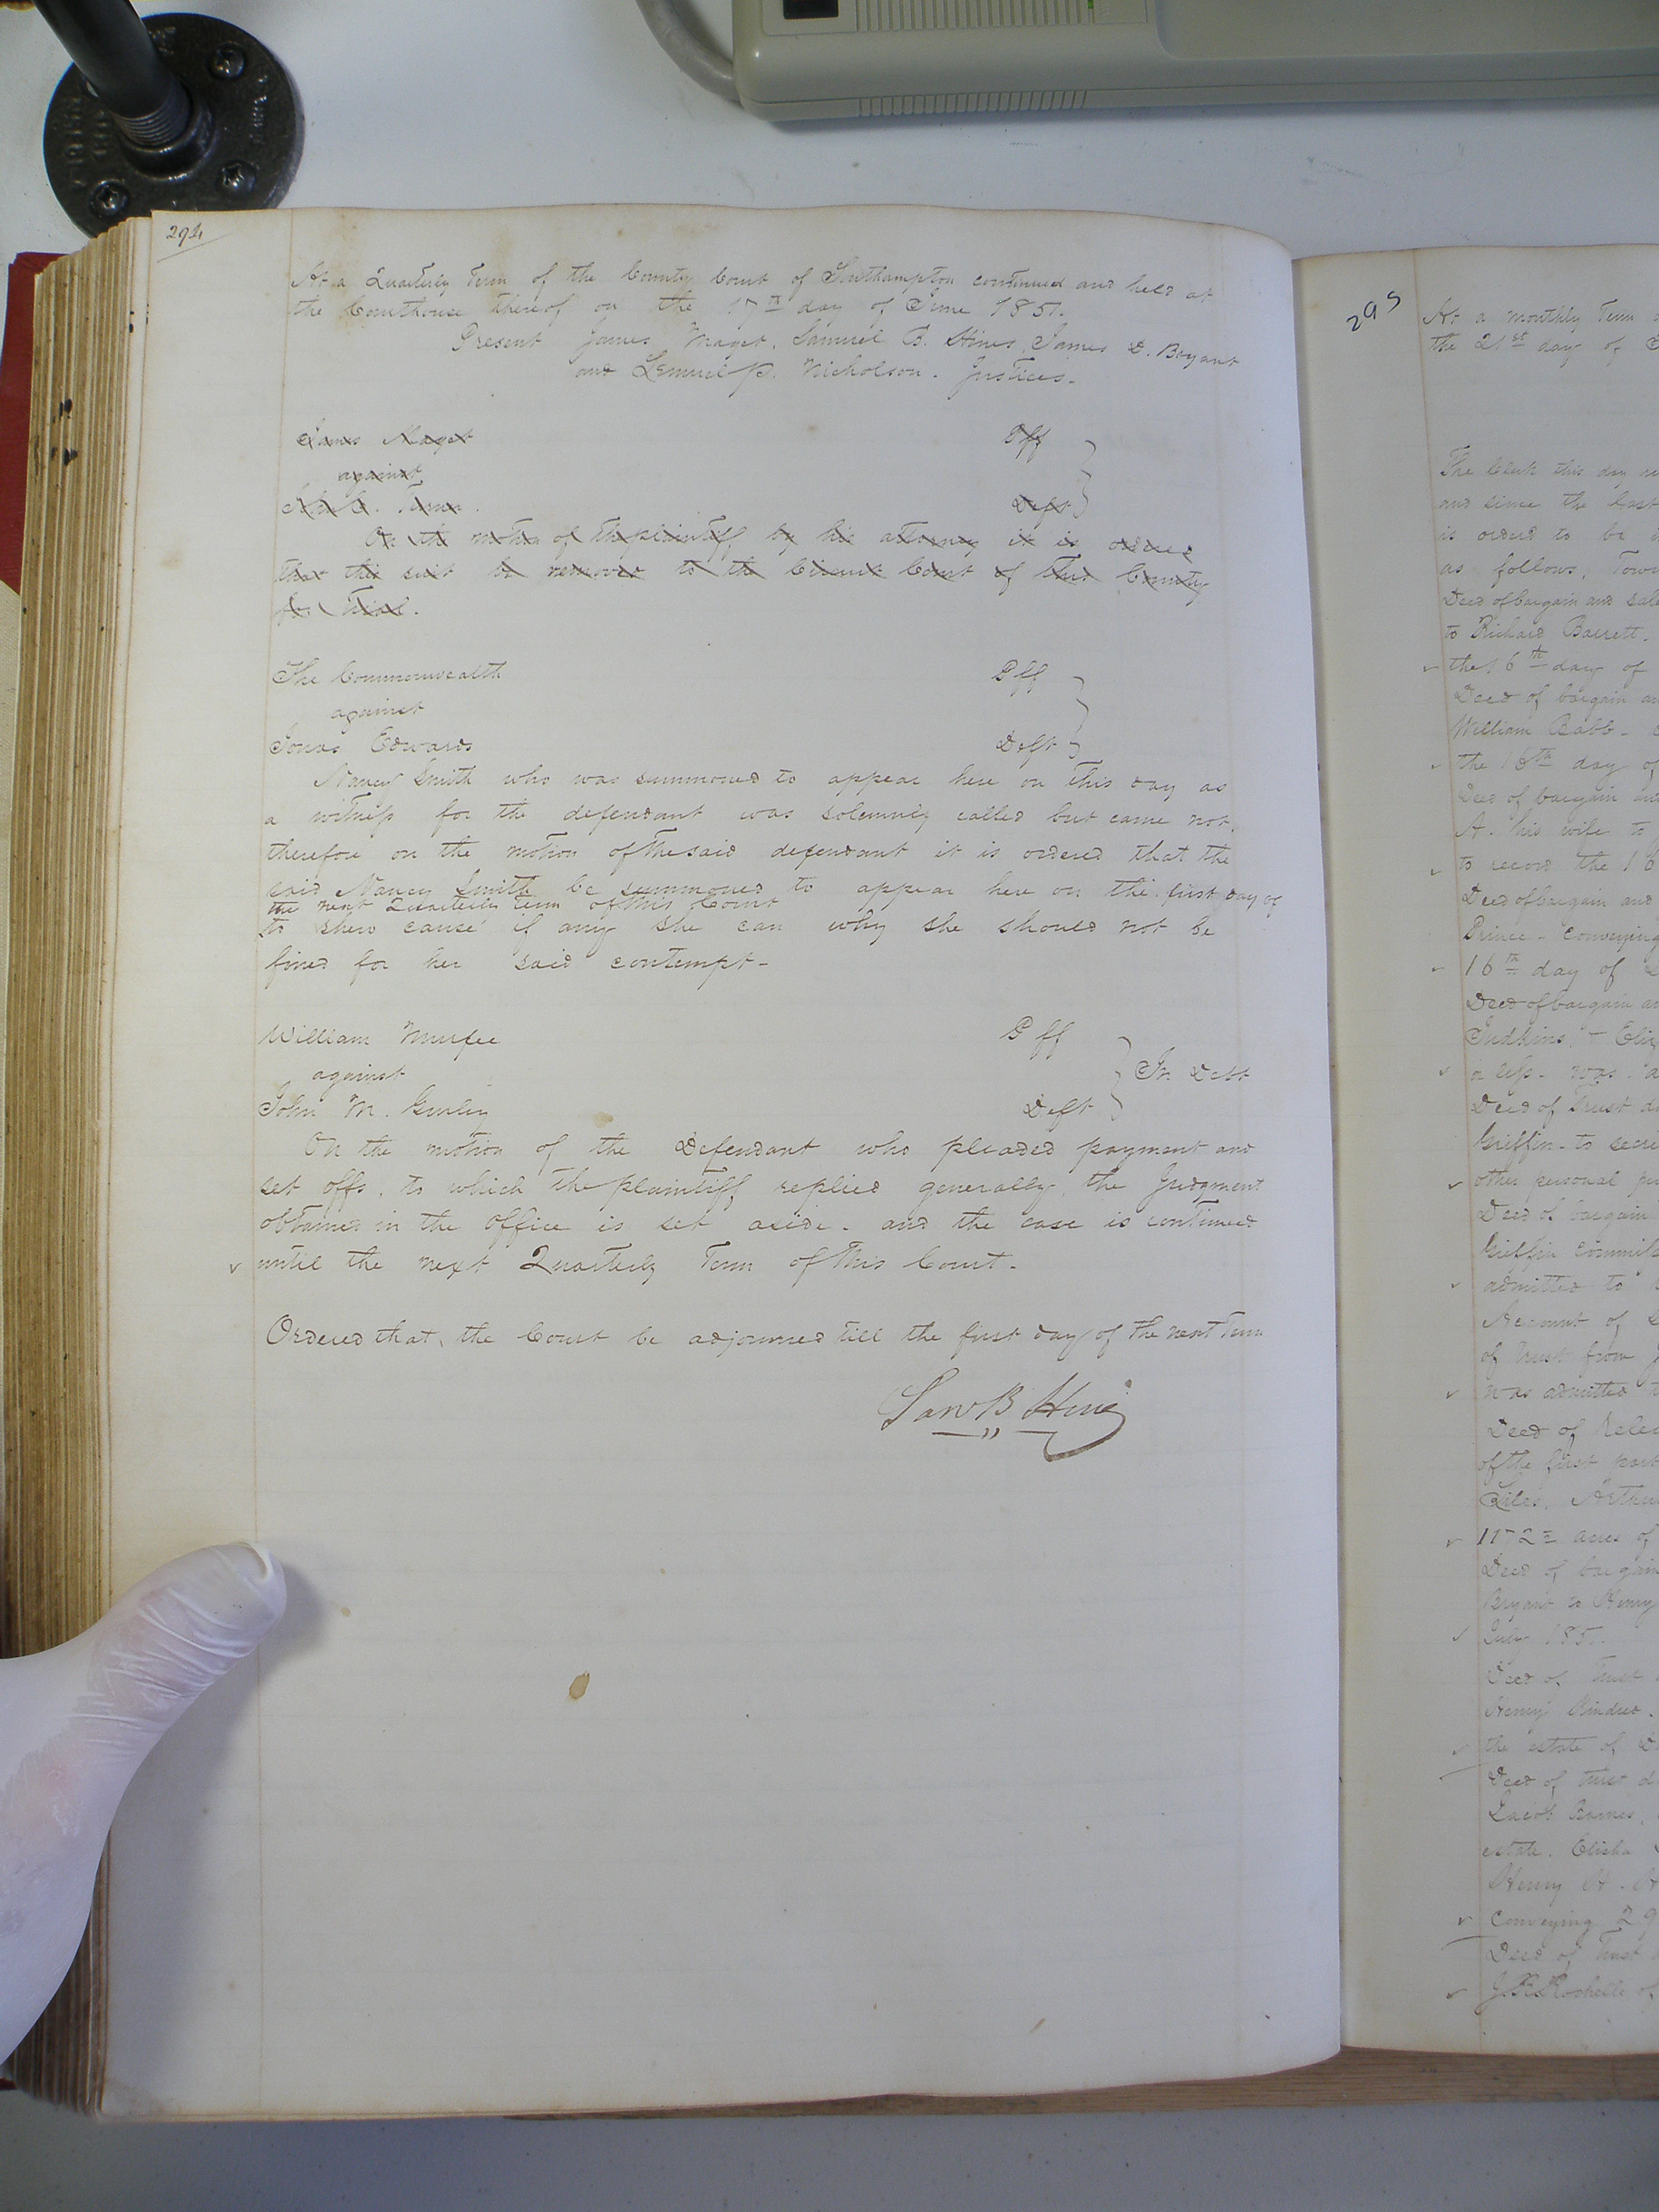 294
At a Quarterly Term of the County Court of Southampton continued and held at
the Courthouse thereof on the 17th day of June 1851.
Present James Maget, Samuel B. Hines, James D. Bryant
and Lemuel P. Nicholson. Justices.
James Maget Plff
against
Deft
On the motion of the plaintiff by his attorney it is ordered
that this suit be removed to the Circuit Court of this County
for trial.
The Commonwealth Plff
against
Jonas Edwards Deft
Nancy Smith who was summoned to appear here on this day as
a witness for the defendant was solemnly called but came not,
therefore on the motion of the said defendant it is ordered that the
said Nancy Smith be summoned to appear here on the first day of
the next Quarterly Term of this Court
to shew cause if any she can why she should not be
fined for her said contempt-
William Murfee Plff
against In Debt
John M. Gurley Deft
On the motion of the Defendant who pleaded payment and
set offs, to which the plaintiff replied generally, the Judgment
obtained in the office is set aside. and the case is continued
until the next Quarterly Term of this Court-
Ordered that, the Court be adjourned till the first day of the next Term
Sam B Hines
295
At a monthly Term
the 21st day of
The Clerk this day
and since the last
is ordered to be
as follows, Town
Deed of bargain and sale
to Richard Barrett.
the 16th day of
Deed of bargain an
William Babb-
the 16th day of
Deed of bargain and
A. his wife to
to record the 16
Deed of bargain and
Prince- conveying
16th day of
Deed of bargain an
Judkins,
a less- was a
Deed of Trust d
Griffin- to secu
other personal
Deed of bargain
Griffin Commiss
admitted to
Account of
of trust from
was admitted
Deed of Relea
of the first part
Giles, Arthur
1172 acres of
Deed of bargain
Bryant to Henry
July 185
Deed of Trust
Henry Kindred.
the estate of
Deed of trust d
Jacob Barnes,
estate. Elisha
Henry H. H
Conveying 29
Deed of Trust
J. R. Rochelle of